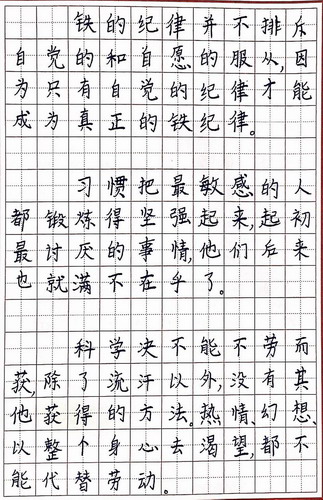 铁的纪律并不排斥
自觉的和自愿的服从,因
为只有自觉的纪律才能
成为真正的铁纪律。
习惯把最敏感的人
都锻炼得坚强起来,起初
最讨厌的事情,他们后来
也就满不在乎了。
科学决不能不劳而
获,除了流汗以外,没有其
他获得的方法。热情、幻想、
以整个身心去渴望,都不
能代替劳动。